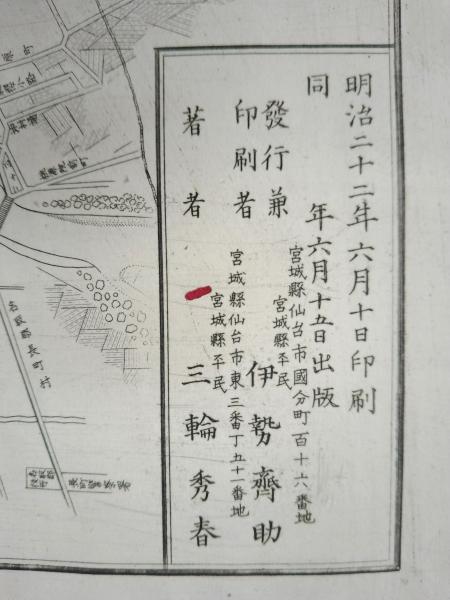 明治二十二年六月十日印刷
同 年六月十五日出版
宮城縣仙台市國分町百十六番地
宮城縣平民
發行兼
印刷者
伊勢齊助
宮城縣仙台市東三番丁五十一番地
宮城縣平民
著者
三輪秀春